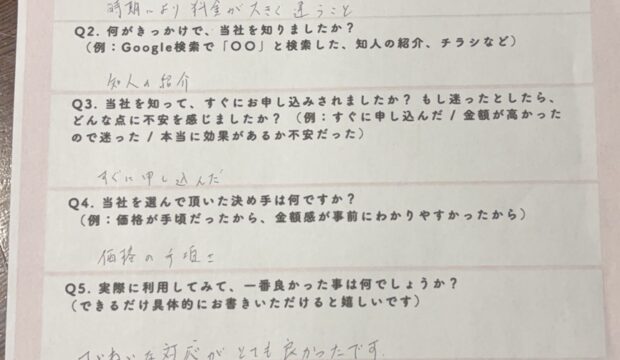 時期により料金が大きく違うこと
Q2. 何がきっかけで、当社を知りましたか？
（例：Google検索で「〇〇」と検索した、知人の紹介、チラシなど）
知人の紹介
Q3. 当社を知って、すぐにお申し込みされましたか？ もし迷ったとしたら、
どんな点に不安を感じましたか？（例：すぐに申し込んだ / 金額が高かった
ので迷った / 本当に効果があるか不安だった）
すぐに申し込んだ
Q4. 当社を選んで頂いた決め手は何ですか？
（例：価格が手頃だったから、金額感が事前にわかりやすかったから）
価格の手頃さ
Q5. 実際に利用してみて、一番良かった事は何でしょうか？
（できるだけ具体的にお書きいただけると嬉しいです）
ていねいな対応がとても良かったです。